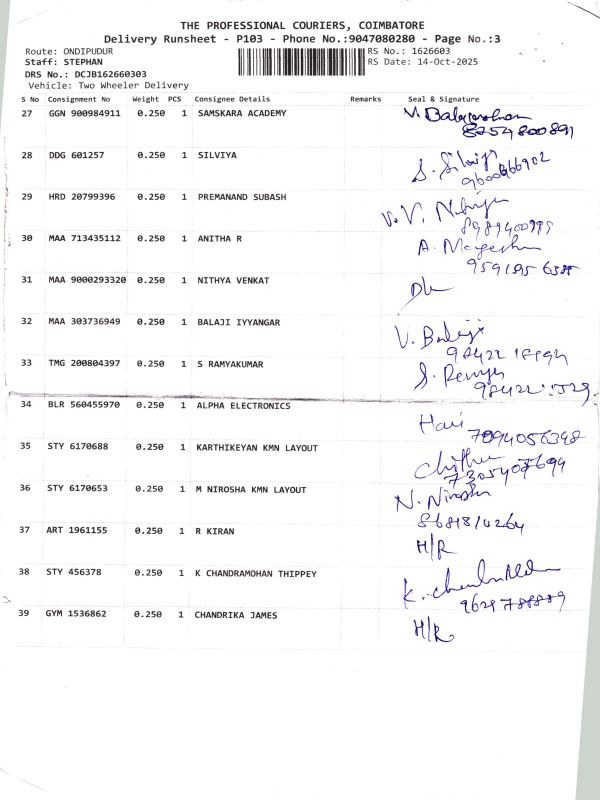 THE PROFESSIONAL COURIERS, COIMBATORE
Delivery Runsheet - P103 - Phone No.:9047080280 - Page No.:3
Route: ONDIPUDUR RS No.: 1626603
Staff: STEPHAN RS Date: 14-Oct-2025
DRS No.: DCJB162660303
Vehicle: Two Wheeler Delivery
S No Consignment No Weight PCS Consignee Details Remarks Seal & Signature
27 GGN 900984911 0.250 1 SAMSKARA ACADEMY
28 DDG 601257 0.250 1 SILVIYA
29 HRD 20799396 0.250 1 PREMANAND SUBASH
30 MAA 713435112 0.250 1 ANITHA R
31 MAA 9000293320 0.250 1 NITHYA VENKAT
32 MAA 303736949 0.250 1 BALAJI IYYANGAR
V. Balaji
33 TMG 200804397 0.250 1 S RAMYAKUMAR
34 BLR 560455970 0.250 1 ALPHA ELECTRONICS
Hari
7094056348
35 STY 6170688 0.250 1 KARTHIKEYAN KMN LAYOUT
36 STY 6170653 0.250 1 M NIROSHA KMN LAYOUT
N. Nirosha
37 ART 1961155 0.250 1 R KIRAN
H/R
38 STY 456378 0.250 1 K CHANDRAMOHAN THIPPEY
39 GYM 1536862 0.250 1 CHANDRIKA JAMES
H/R